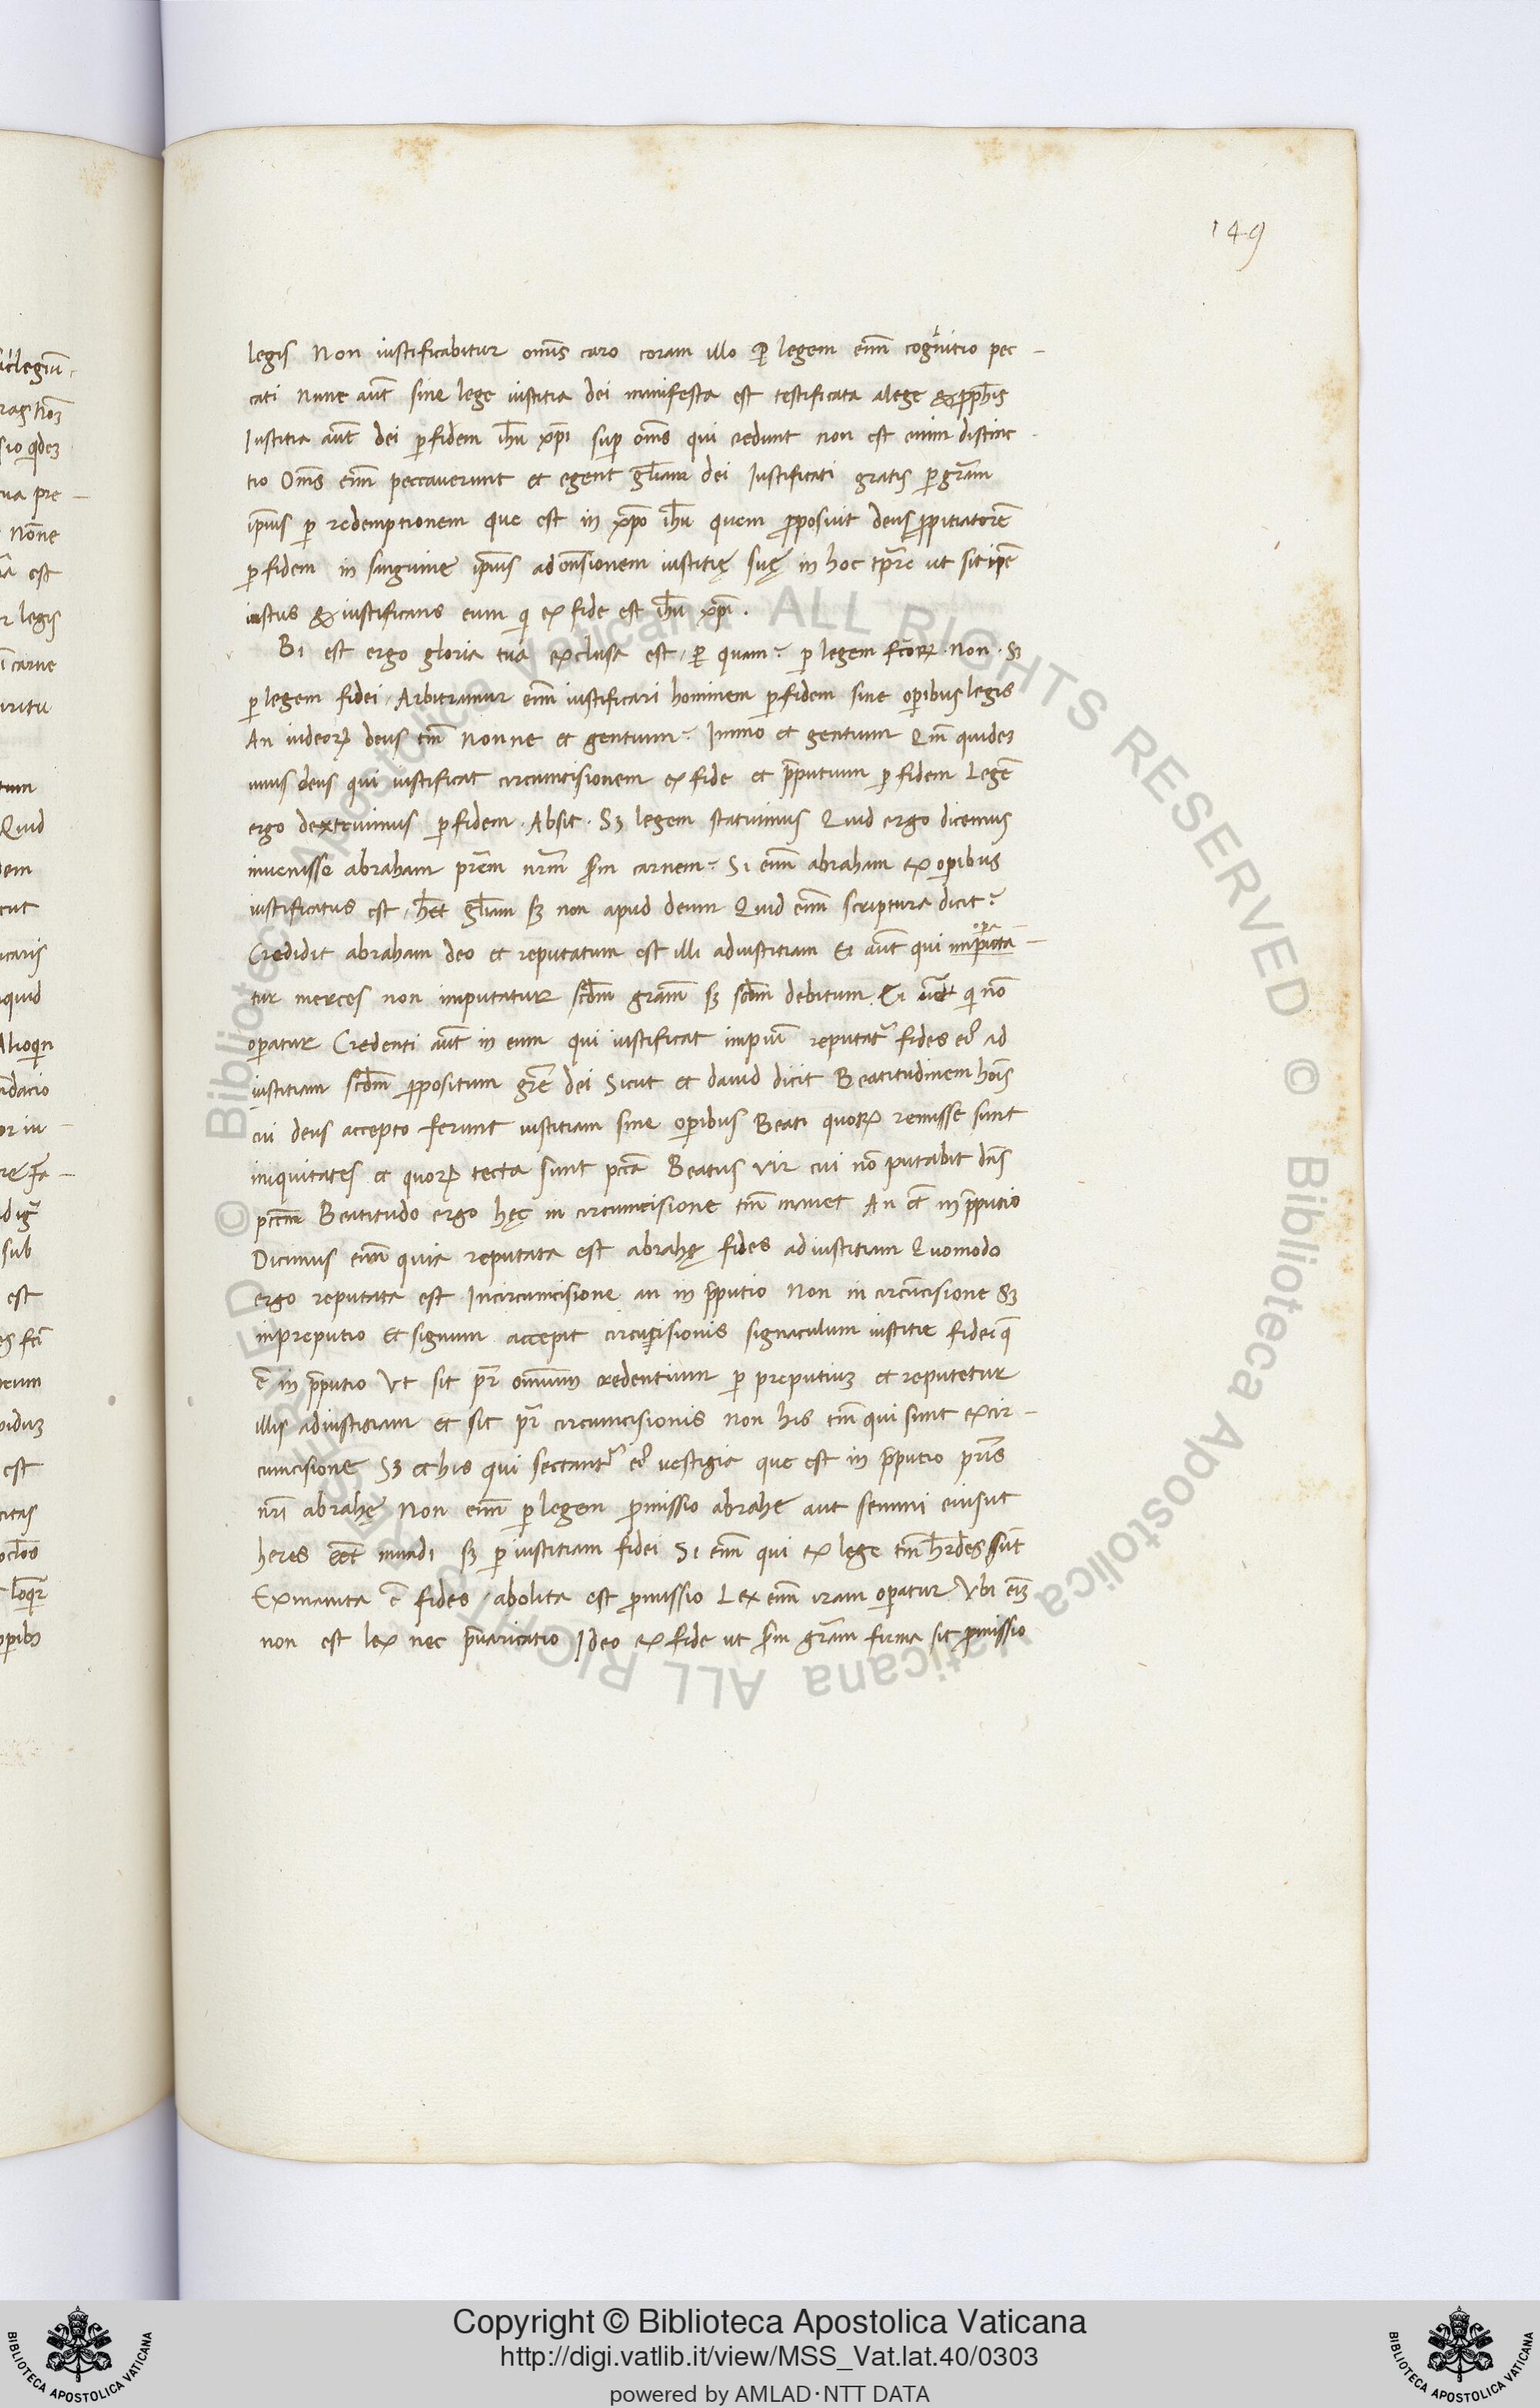 149
legis Non iustificabitur om̄s caro coram illo ꝑ legem em̄ cognitio pec-
cati Nunc aūt sine lege iustitia dei manifesta est testificata alege & ꝓph̄is
Iustitia aūt dei ꝑ fidem ih̄u xp̄i sup̄ om̄s qui credunt non est enim distinc-
tio Om̄s em̄ peccaverunt et egent gl̄iam dei Iustificati gratis ꝑ grām
ip̄ius ꝑ redemptionem que est in xp̄o ih̄u quem ꝓposuit deus ꝓpitiatorē
ꝑ fidem in sanguine ip̄ius ad on̄sionem iustitię suę in hoc tp̄are ut sit ip̄e
iustus & iustificans eum qi ex fide est ih̄u xp̄i .
Bi est ergo gloria tua exclusa est, ꝑ quam? ꝑ legem fc̄oꝝ. Non. Sꝫ
ꝑ legem fidei, Arbitramur em̄ iustificari hominem ꝑ fidem sine oꝑibus legis
An iudeoꝝ deus tm̄ Nonne et gentium? Immo et gentium Qm̄ quideꝫ
unus deus qui iustificat circumcisionem ex fide et p̄putium ꝑ fidem Legē
ergo dextruimus ꝑ fidem. Absit. Sꝫ legem statuimus Quid ergo dicemus
invenisse abraham pr̄em nr̄m sm̄ carnem? Si em̄ abraham ex oꝑibus
iustificatus est, h̄et gl̄iam sꝫ non apud deum Quid em̄ scriptura dicit?
Credidit abraham deo et reputatum est illi adiustitiam Ei aūt qui imputa-
oꝑa
tur merces non imputatur scd̄m grām sꝫ scd̄m debitum. Ei aūt qi nō
oꝑatur Credenti aūt in eum qui iustificat impiū reputat̄ fides eꝰ ad
iustitiam scd̄m ꝓpositum grē dei Sicut et david dicit Beatitudinem hoīs
cui deus accepto ferunt iustitiam sine oꝑibus Beati quoꝝ remisse sunt
iniquitates et quoꝝ tecta sunt pcc̄a Beatus vir cui nō putabit dn̄s
pcc̄m Beatitudo ergo hęc in circumcisione tm̄ manet An et̄ in p̄putio
Dicimus em̄ quia reputata est abrahę fides ad iustitiam Quomodo
ergo reputata est Incircumcisione an in p̄putio Non in circūcisione Sꝫ
inpreputio Et signum accepit circūcisionis signaculum iustitie fidei q̄
ē in p̄putio Ut sit pr̄ omnium credentium ꝑ preputiuꝫ et reputetur
illis adiustitiam et sit pr̄ circumcisionis non his tm̄ qui sunt excir-
cumcisione Sꝫ et his qui sectant̄ eꝰ vestigia que est in p̄putio pr̄is
nr̄i abrahę Non em̄ ꝑ legem ꝓmissio abrahę aut semini eius ut
heres eēt mundi sꝫ ꝑ iustitiam fidei Si em̄ qui ex lege tm̄ h̄rdes sūt
Exinanita ē fides, abolita est ꝓmissio Lex em̄ iram oꝑatur Ubi eīꝫ
non est lex nec p̄varicatio Ideo ex fide ut sm̄ grām firma sit ꝓmissio
Copyright © Biblioteca Apostolica Vaticana
http://digi.vatlib.it/view/MSS_Vat.lat.40/0303
powered by AMLAD·NTT DATA